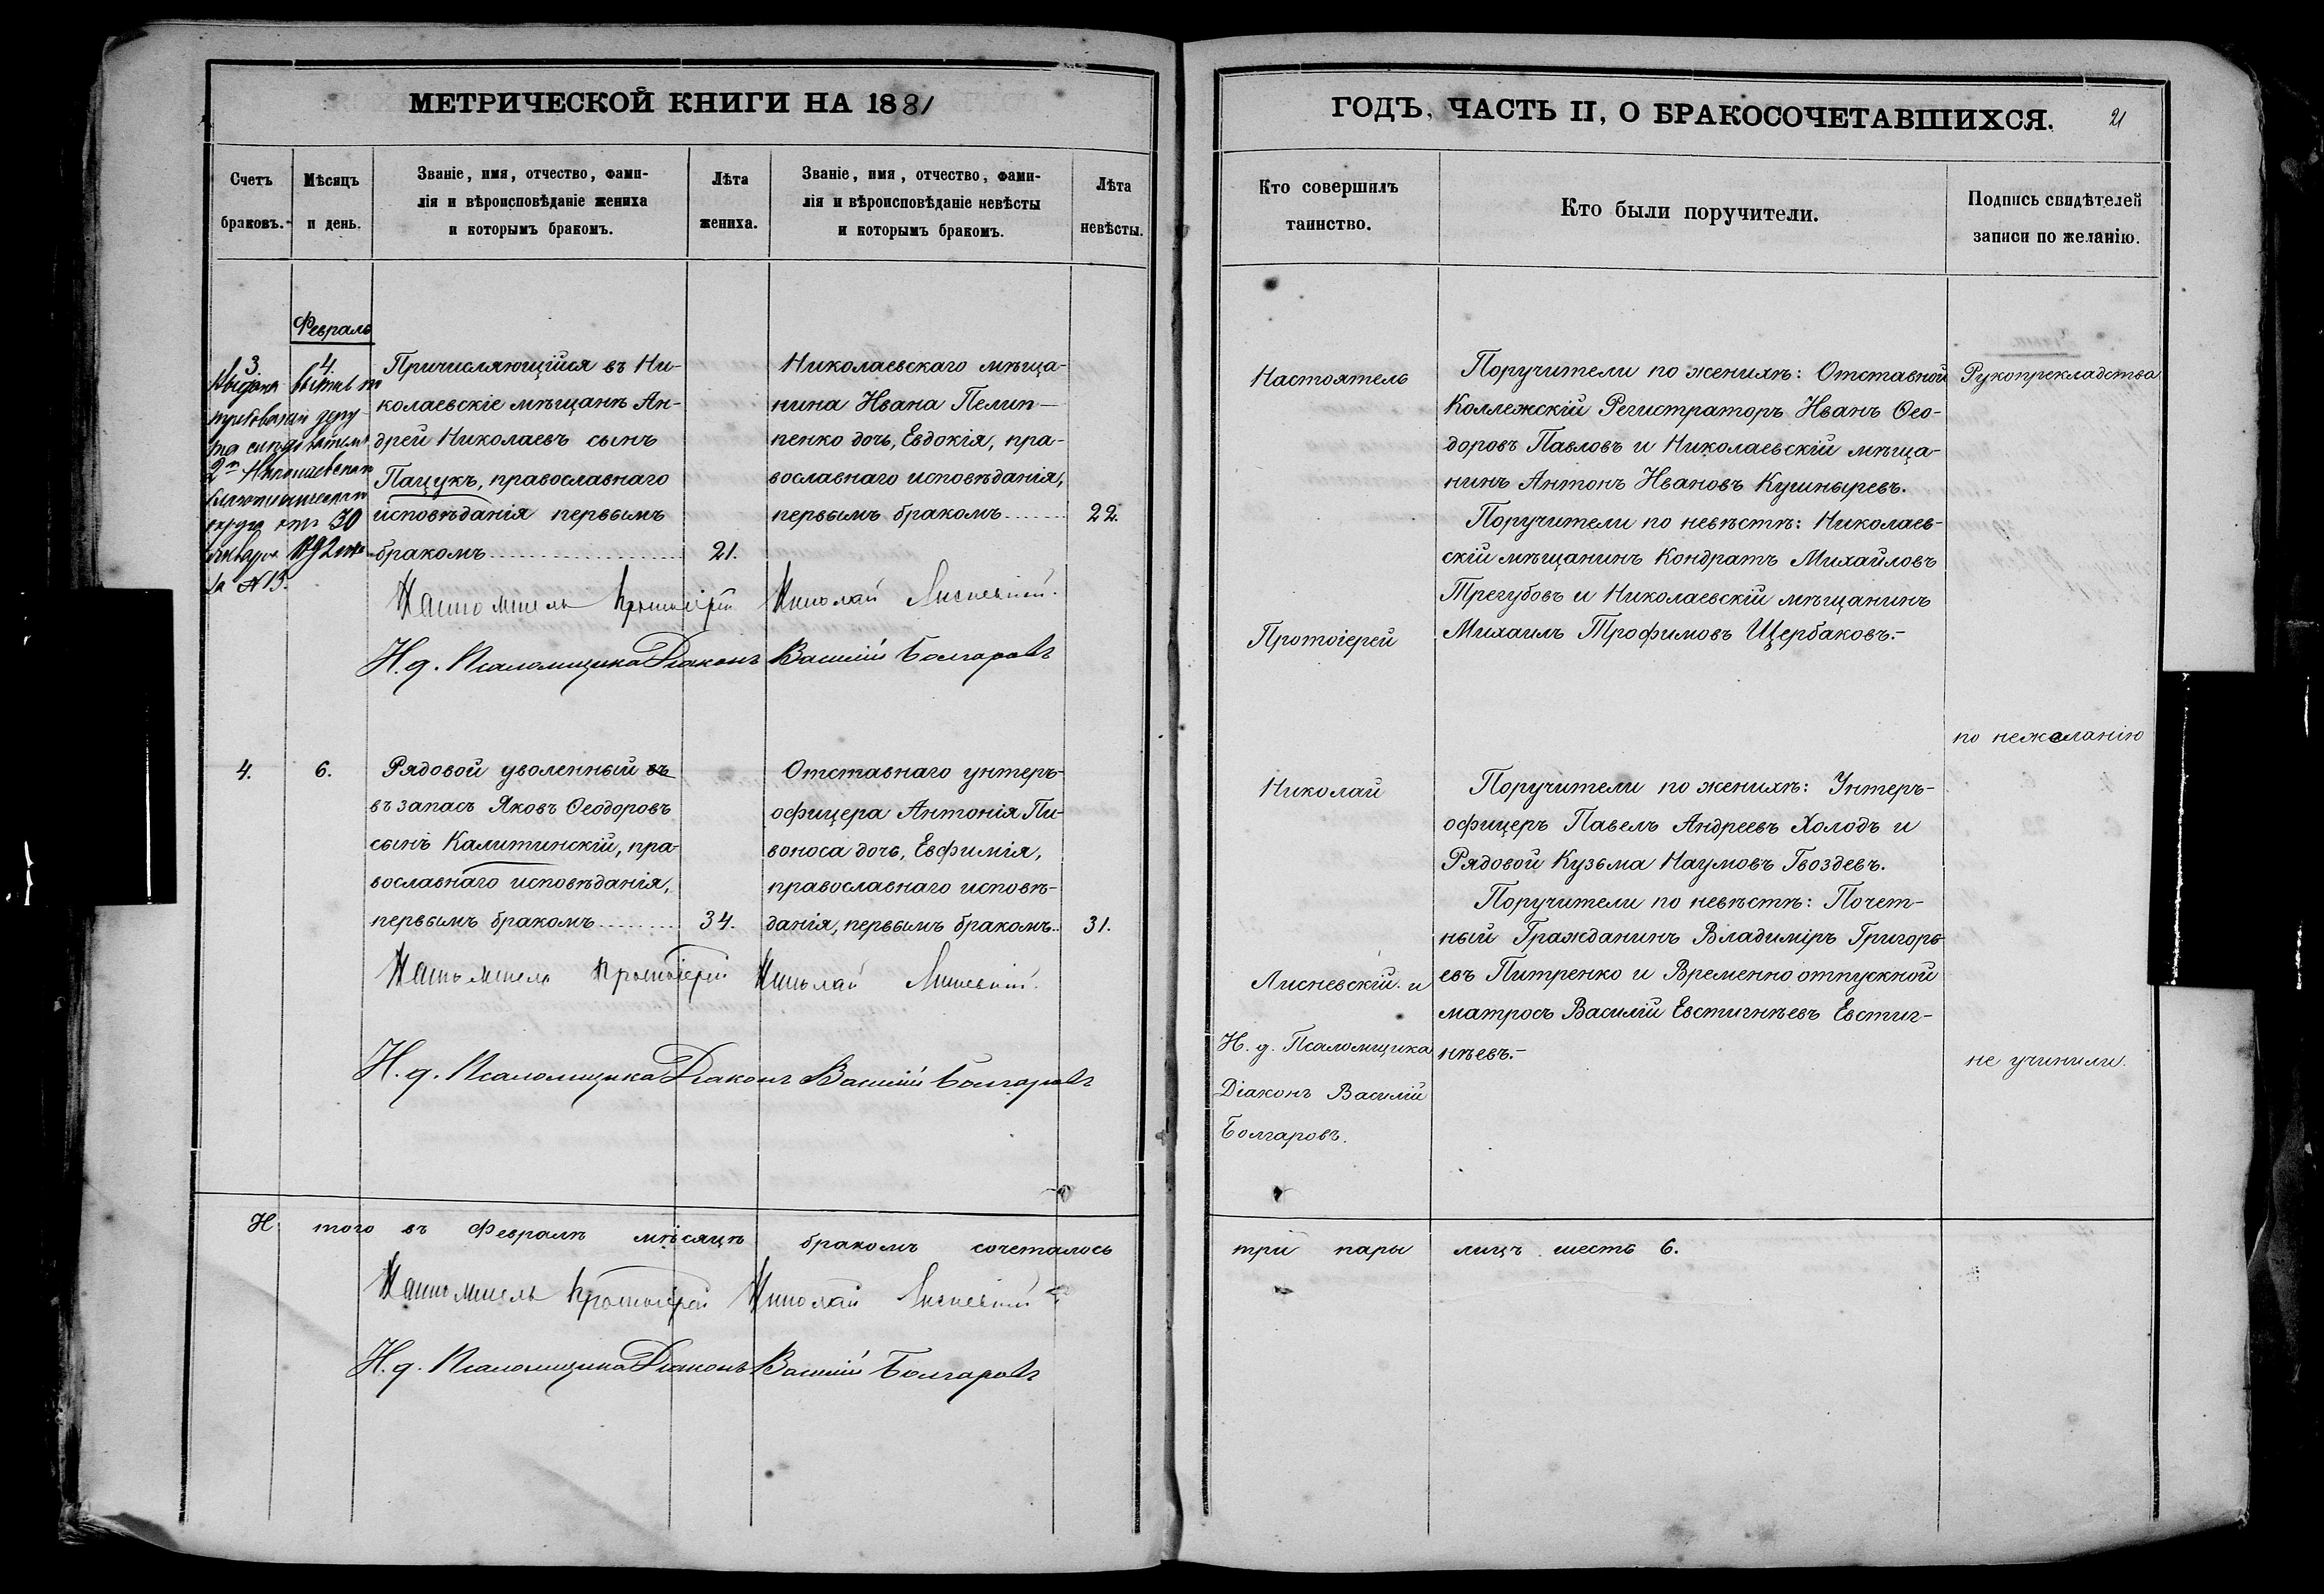 МЕТРИЧЕСКОЙ КНИГИ НА 1881
Счетъ браковъ.
Мѣсяцъ и день.
Званіе, имя, отчество, фами-
лія и вѣроисповѣданіе жениха
и которымъ бракомъ.
Лѣта жениха.
Званіе, имя, отчество, фами-
лія и вѣроисповѣданіе невѣсты
и которымъ бракомъ.
Лѣта невѣсты.
Февраль
3.
4.
округа отъ 30
за №13.
Причисляющійся въ Ни-
колаевскіе мѣщанѣ Ан-
дрей Николаевъ сынъ
Пацукъ, православнаго
исповѣданія первымъ
бракомъ
21.
Николаевскаго мѣща-
нина Ивана Пелип-
пенко дочь, Евдокія, пра-
вославнаго исповѣданія,
первымъ бракомъ
22.
Настоятель Протоіерей Николай Лисневскій.
И. д. Псаломщика Діаконъ Василій Болгаровъ
4.
6.
Рядовой уволенный въ
въ запасъ Яковъ Ѳеодоровъ
сынъ Калитинскій, пра-
вославнаго исповѣданія,
первымъ бракомъ
34.
Отставнаго унтеръ-
офицера Антонія Пи-
воноса дочь, Евфимія,
православнаго исповѣ-
данія, первымъ бракомъ
31.
Настоятель Протоіерей Николай Лисневскій.
И. д. Псаломщика Діаконъ Василій Болгаровъ
И того въ Февралѣ мѣсяцѣ бракомъ сочеталось
Настоятель Протоіерей Николай Лисневскій
И. д. Псаломщика Діаконъ Василій Болгаровъ
ГОДЪ, ЧАСТЬ II, О БРАКОСОЧЕТАВШИХСЯ.
21
Кто совершилъ
таинство.
Кто были поручители.
Подпись свидѣтелей
записи по желанію.
Настоятель
Протоіерей
Николай
Лисневскій и
И. д. Псаломщика
Діаконъ Василій
Болгаровъ.
Поручители по женихѣ: Отставной
Коллежскій Регистраторъ Иванъ Ѳео-
доровъ Павловъ и Николаевскій мѣща-
нинъ Антонъ Ивановъ Кушныревъ.
Поручители по невѣстѣ: Николаев-
скій мѣщанинъ Кондратъ Михайловъ
Трегубовъ и Николаевскій мѣщанинъ
Михаилъ Трофимовъ Щербаковъ.-
Поручители по женихѣ: Унтеръ-
офицеръ Павелъ Андреевъ Холодъ и
Рядовой Кузьма Наумовъ Гвоздевъ.
Поручители по невѣстѣ: Почет-
ный Гражданинъ Владиміръ Григорь-
евъ Питренко и Временно отпускной
матросъ Василій Евстигнѣевъ Евстиг-
нѣевъ.-
Рукопрекладства
по нежеланію
не учинили.
три пары лицъ шесть 6.